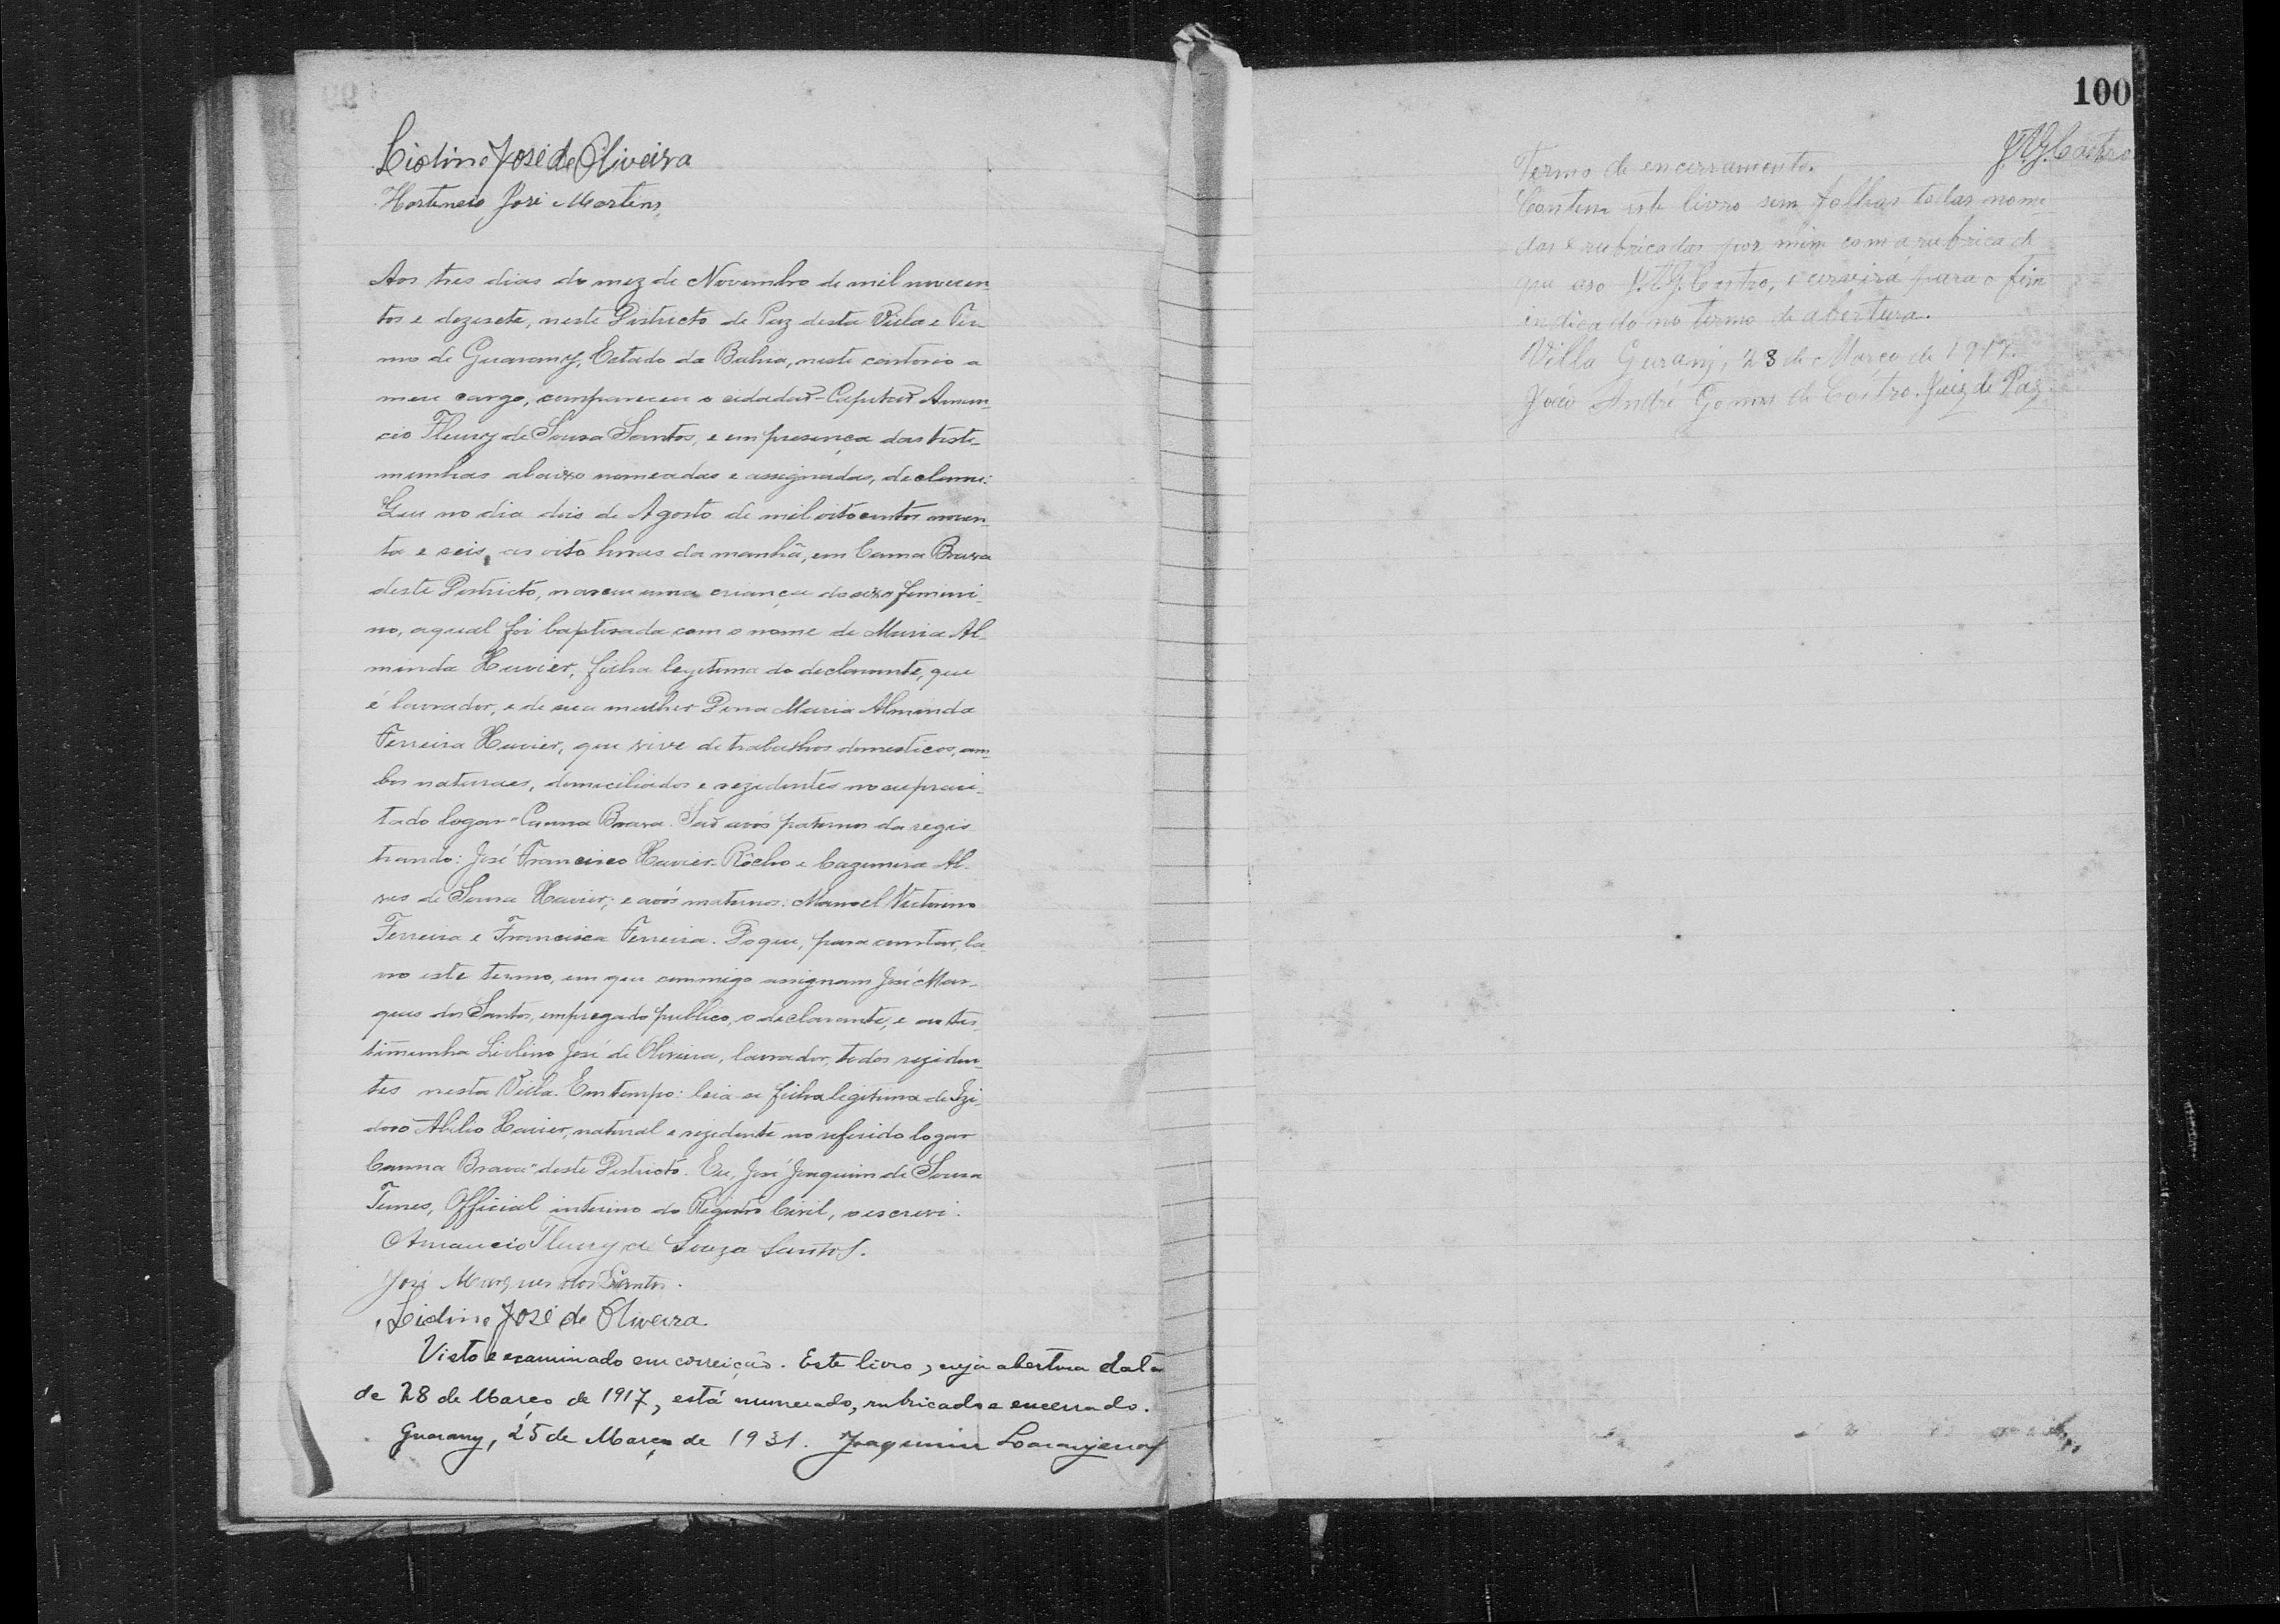 Liolino José de Oliveira
Hortencio José Martins
Aos tres dias do mez de Novembro de mil novecen-
tos e dezesete, neste Districto de Paz desta Villa e Ter-
mo de Guarany, Estado da Bahia, neste cartorio a
meu cargo, compareceu o cidadaõ Capitaõ Aman-
cio Fleury de Sousa Santos, e em presença das teste-
munhas abaixo nomeadas e assignadas, declarou:
Que no dia dois de Agosto de mil oitocentos noven-
ta e seis, as oito horas da manhã, em Canna Brava
deste Districto, nasceu uma criança do sexo femini-
no, a qual foi baptisada com o nome de Maria Al-
minda Xavier, filha legitima do declarante, que
é lavrador, e de sua mulher Dona Maria Alminda
Ferreira Xavier, que vive de trabalhos domesticos, am-
bos naturaes, domiciliados e rezidentes no supraci-
tado logar "Canna Brava. Saõ avós paternos da regis
trando: José Francisco Xavier Rôcho e Cazemira Al-
ves de Sousa Xavier; e avós maternos: Manoel Victorino
Ferreira e Francisca Ferreira. Do que, para constar, la-
vro este termo, em que commigo assignam José Mar-
ques dos Santos, empregado publico, o declarante, e as tes-
timunha Liolino José de Oliveira, lavrador, todos reziden-
tes nesta Villa. Em tempo: leia-se filha legitima de Izi-
doro Abilio Xavier, natural e rezidente no referido logar
Canna Brava" deste Districto. Eu, José Joaquim de Sousa
Tunes, Official interino do Registro Civil, o escrevi.
Amancio Fleury de Souza Santos.
José Marques dos Santos.
Liolino José de Oliveira.
Visto e examinado em correição. Este livro, cuja abertura data
de 28 de Março de 1917, está numerado, rubricado e encerrado.
Guarany, 25 de Março de 1931. Joaquim Laranjeiras
100
J.A.G. Castro
Termo de encerramento.
Contem este livro sem folhas todas nome-
das e rubricadas por mim com a rubrica de
que uso J.A.G. Castro, e cerverá para o fim
indicado no termo de abertura.
Villa Gurany, 28 de Março de 1917.
João André Gomes de Castro. Juiz de Paz